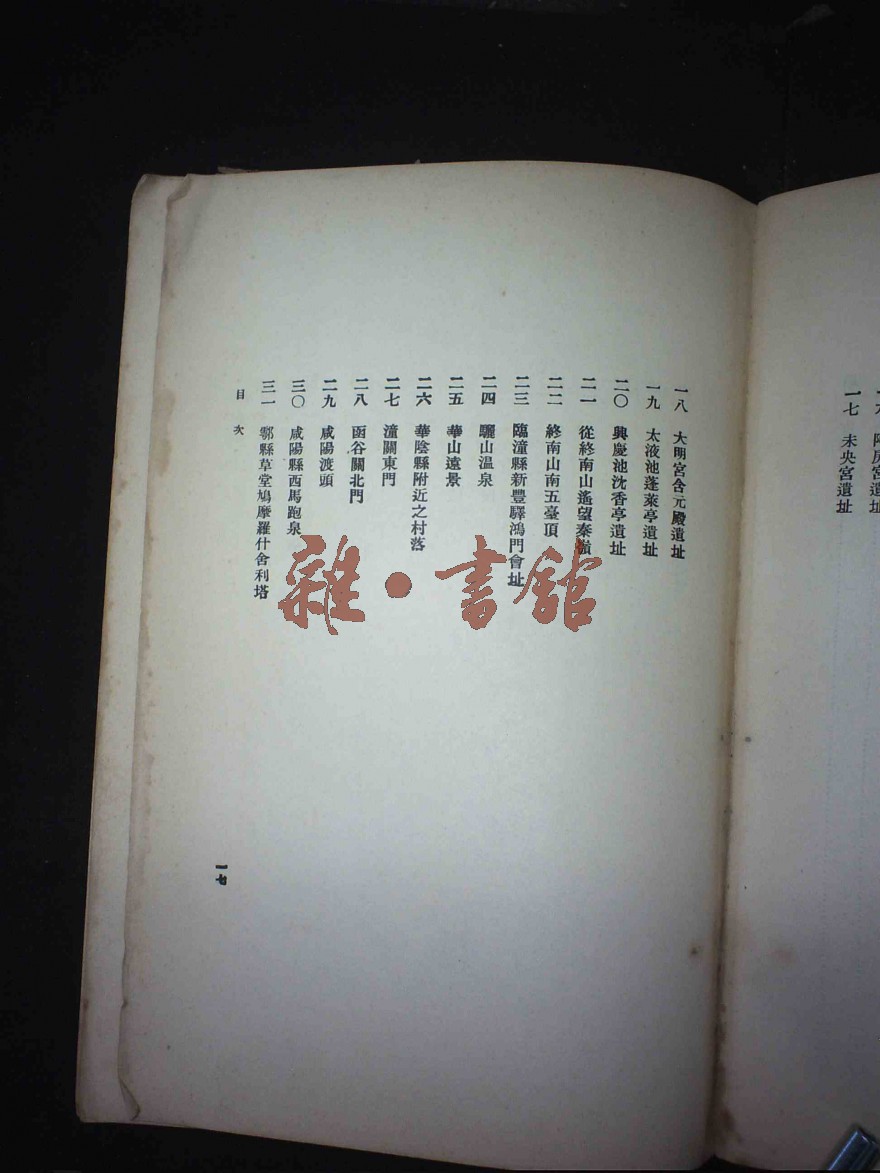 一七　未央宮遺址
一八　大明宮含元殿遺址
一九　太液池蓬萊亭遺址
二〇　興慶池沈香亭遺址
二一　從終南山遙望秦嶺
二二　終南山南五臺頂
二三　臨潼縣新豐驛鴻門會址
二四　驪山温泉
二五　華山遠景
二六　華陰縣附近之村落
二七　潼關東門
二八　函谷關北門
二九　咸陽渡頭
三〇　咸陽縣西馬跑泉
三一　鄠縣草堂鳩摩羅什舍利塔
目　次
一七
雜·書館